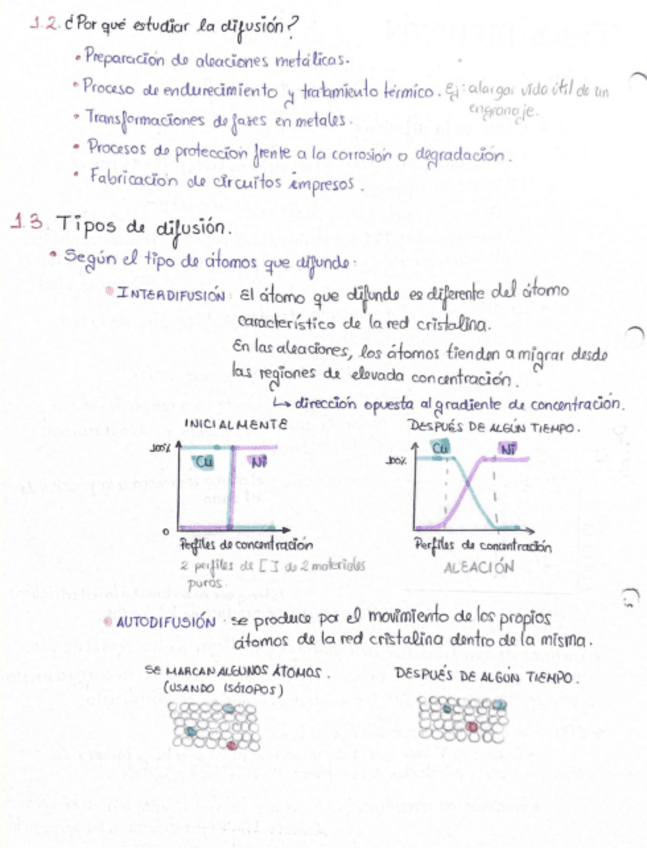 1.2. ¿Por qué estudiar la difusión?
• Preparación de aleaciones metálicas.
• Proceso de endurecimiento y tratamiento térmico. Ej: alargar vida útil de un
engranaje.
• Transformaciones de fases en metales.
• Procesos de protección frente a la corrosión o degradación.
• Fabricación de circuitos impresos.
1.3. Tipos de difusión.
• Según el tipo de átomos que difunde:
• INTERDIFUSIÓN: El átomo que difunde es diferente del átomo
característico de la red cristalina.
En las aleaciones, los átomos tienden a migrar desde
las regiones de elevada concentración.
↳ dirección opuesta al gradiente de concentración.
INICIALMENTE
100%
Cu
Ni
0
Perfiles de concentración
2 perfiles de [ ] de 2 materiales
puros.
DESPUÉS DE ALGÚN TIEMPO.
100%
Cu
Ni
Perfiles de concentración
ALEACIÓN
• AUTODIFUSIÓN: se produce por el movimiento de los propios
átomos de la red cristalina dentro de la misma.
SE MARCAN ALGUNOS ÁTOMOS.
(USANDO ISÓTOPOS)
DESPUÉS DE ALGÚN TIEMPO.